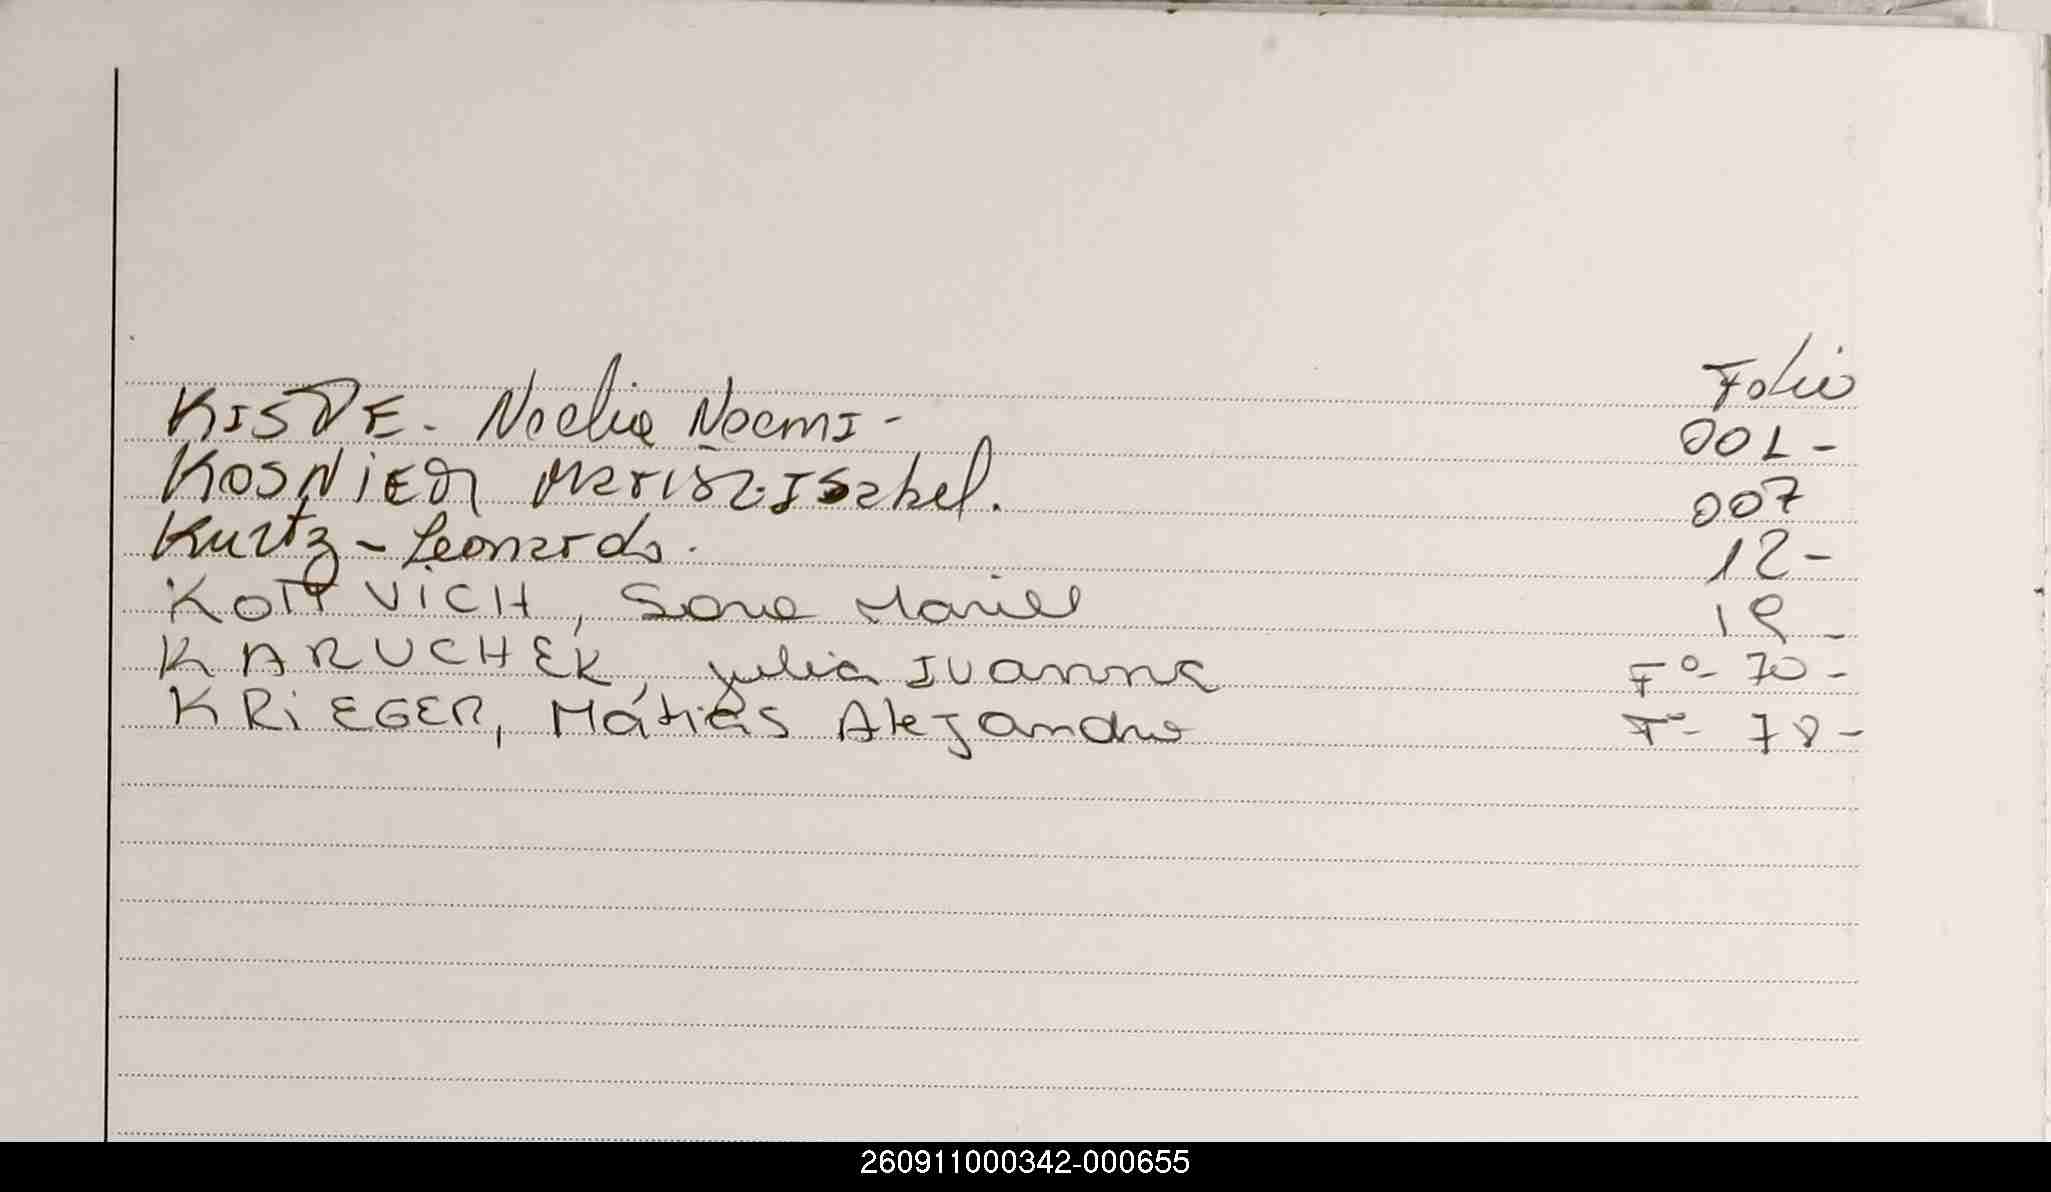 Folio
KISDE. Noelia Noemi - 001 -
KOSNIER Marisa Isabel. 007
Kurtz - Leonardo. 12 -
VICH, Mariel 19 -
KARUCHEK, Julia IVANNA F° - 70 -
KRIEGER, Mátias Alejandro F° - 78 -
260911000342-000655